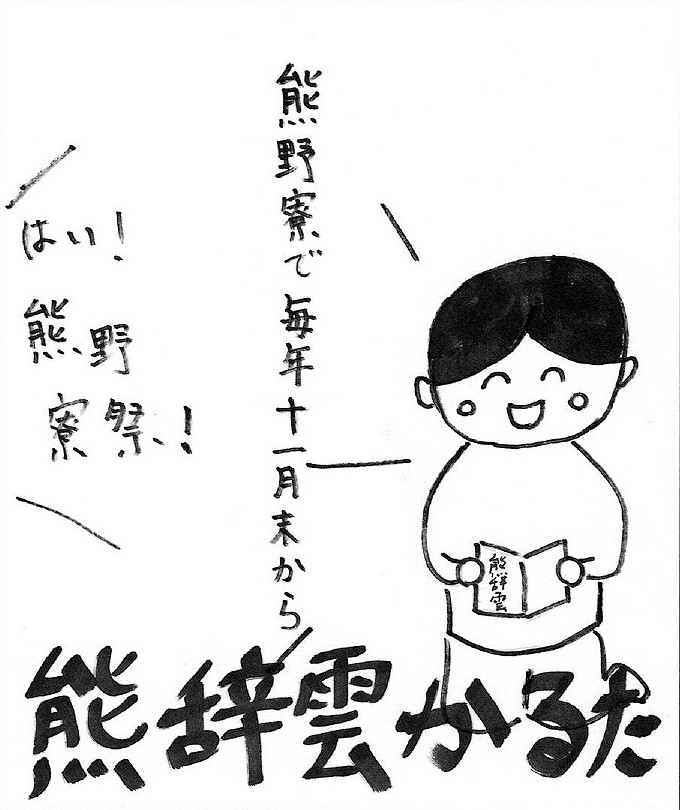 熊野寮で毎年十一月末から
はい!
熊野
寮祭!
熊辞雲
熊辞雲かるた